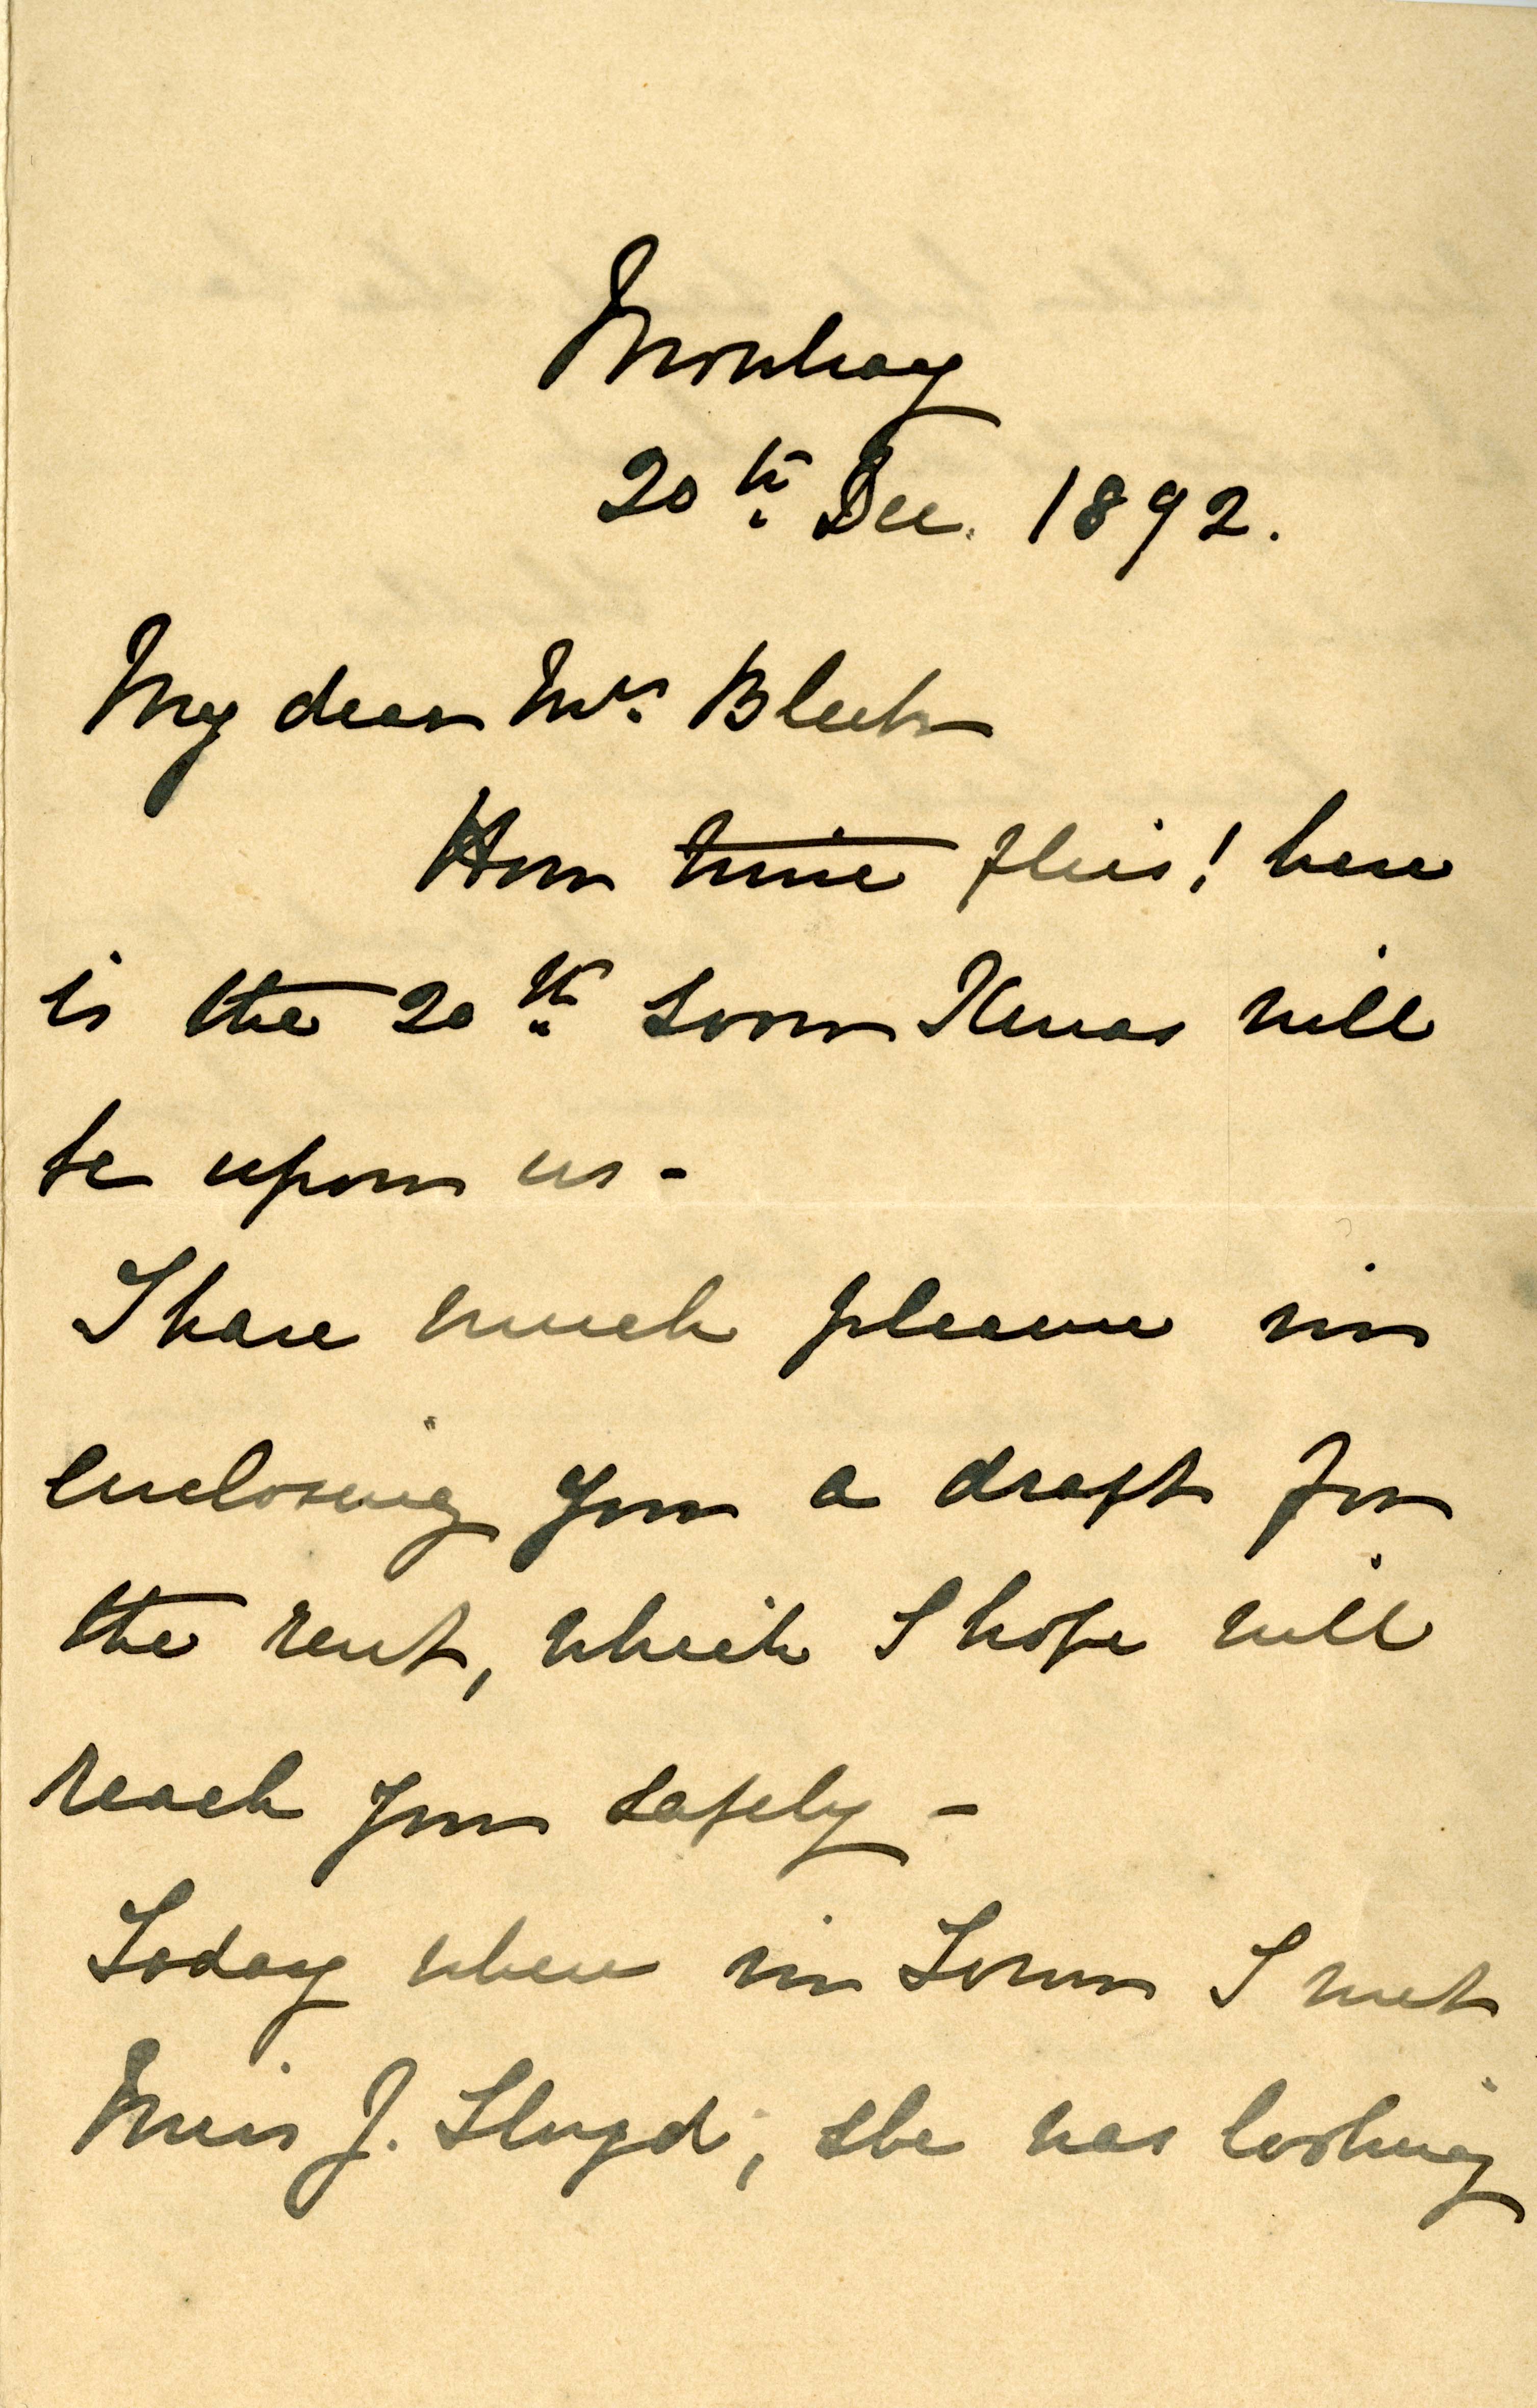 Monday
20th Dec. 1892.
My dear Mrs Bleek
How time flies! here
is the 20th Soon Xmas will
be upon us -
I have much pleasure in
enclosing you a draft for
the rent, which I hope will
reach you safely -
Today when in Town I met
Miss J. Lloyd, she was looking